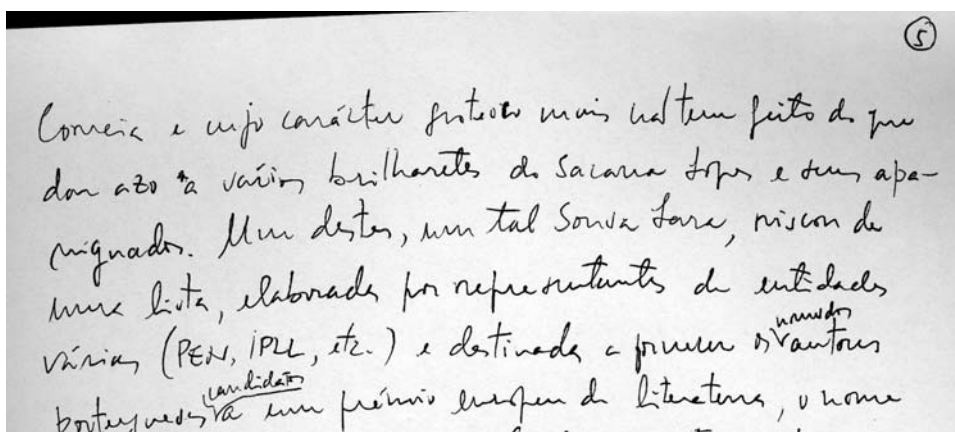 5
Correia e cujo carácter grotesco mais não tem feito do que
dar azo a vários brilharetes do Sacana Lopes e seus apa-
niguados. Um destes, um tal Sousa Lara, riscou de
uma lista, elaborada por representantes de entidades
várias (PEN, IPLL, etc.) e destinada a os autores
candidatos
portugueses a um prémio europeu de literatura, o nome